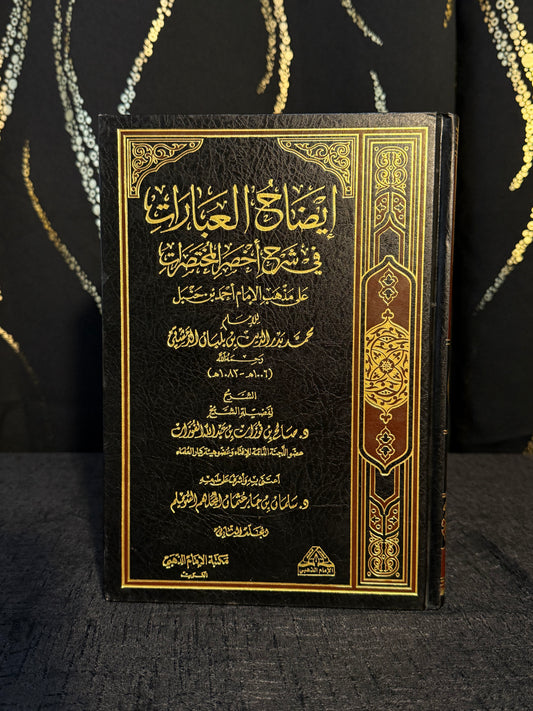 إيضاح العبارات
في شرح أخصر المختصرات
على مذهب الإمام أحمد بن حنبل
للإمام
محمد بدر الدين بن بلبان الدمشقي
رحمه الله
(١٠٠٦هـ - ١٠٨٣هـ)
الشرح
لفضيلة الشيخ
د. صالح بن فوزان بن عبد الله الفوزان
عضو اللجنة الدائمة للإفتاء وعضو هيئة كبار العلماء
اعتنى به وأشرف على طبعه
د. سلمان بن جابر عثمان المجلهم السويلم
المجلد الثاني
مكتبة الإمام الذهبي
الكويت
الإمام الذهبي